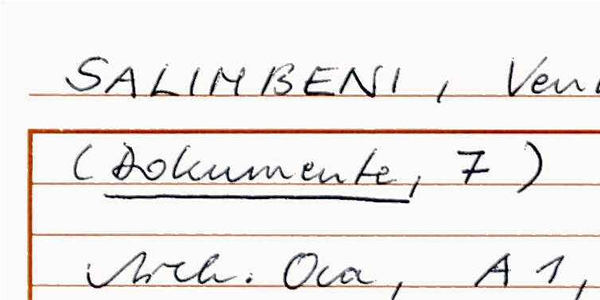 SALIMBENI, Ven
(Dokumente, 7)
Arch. Oca, A 1,